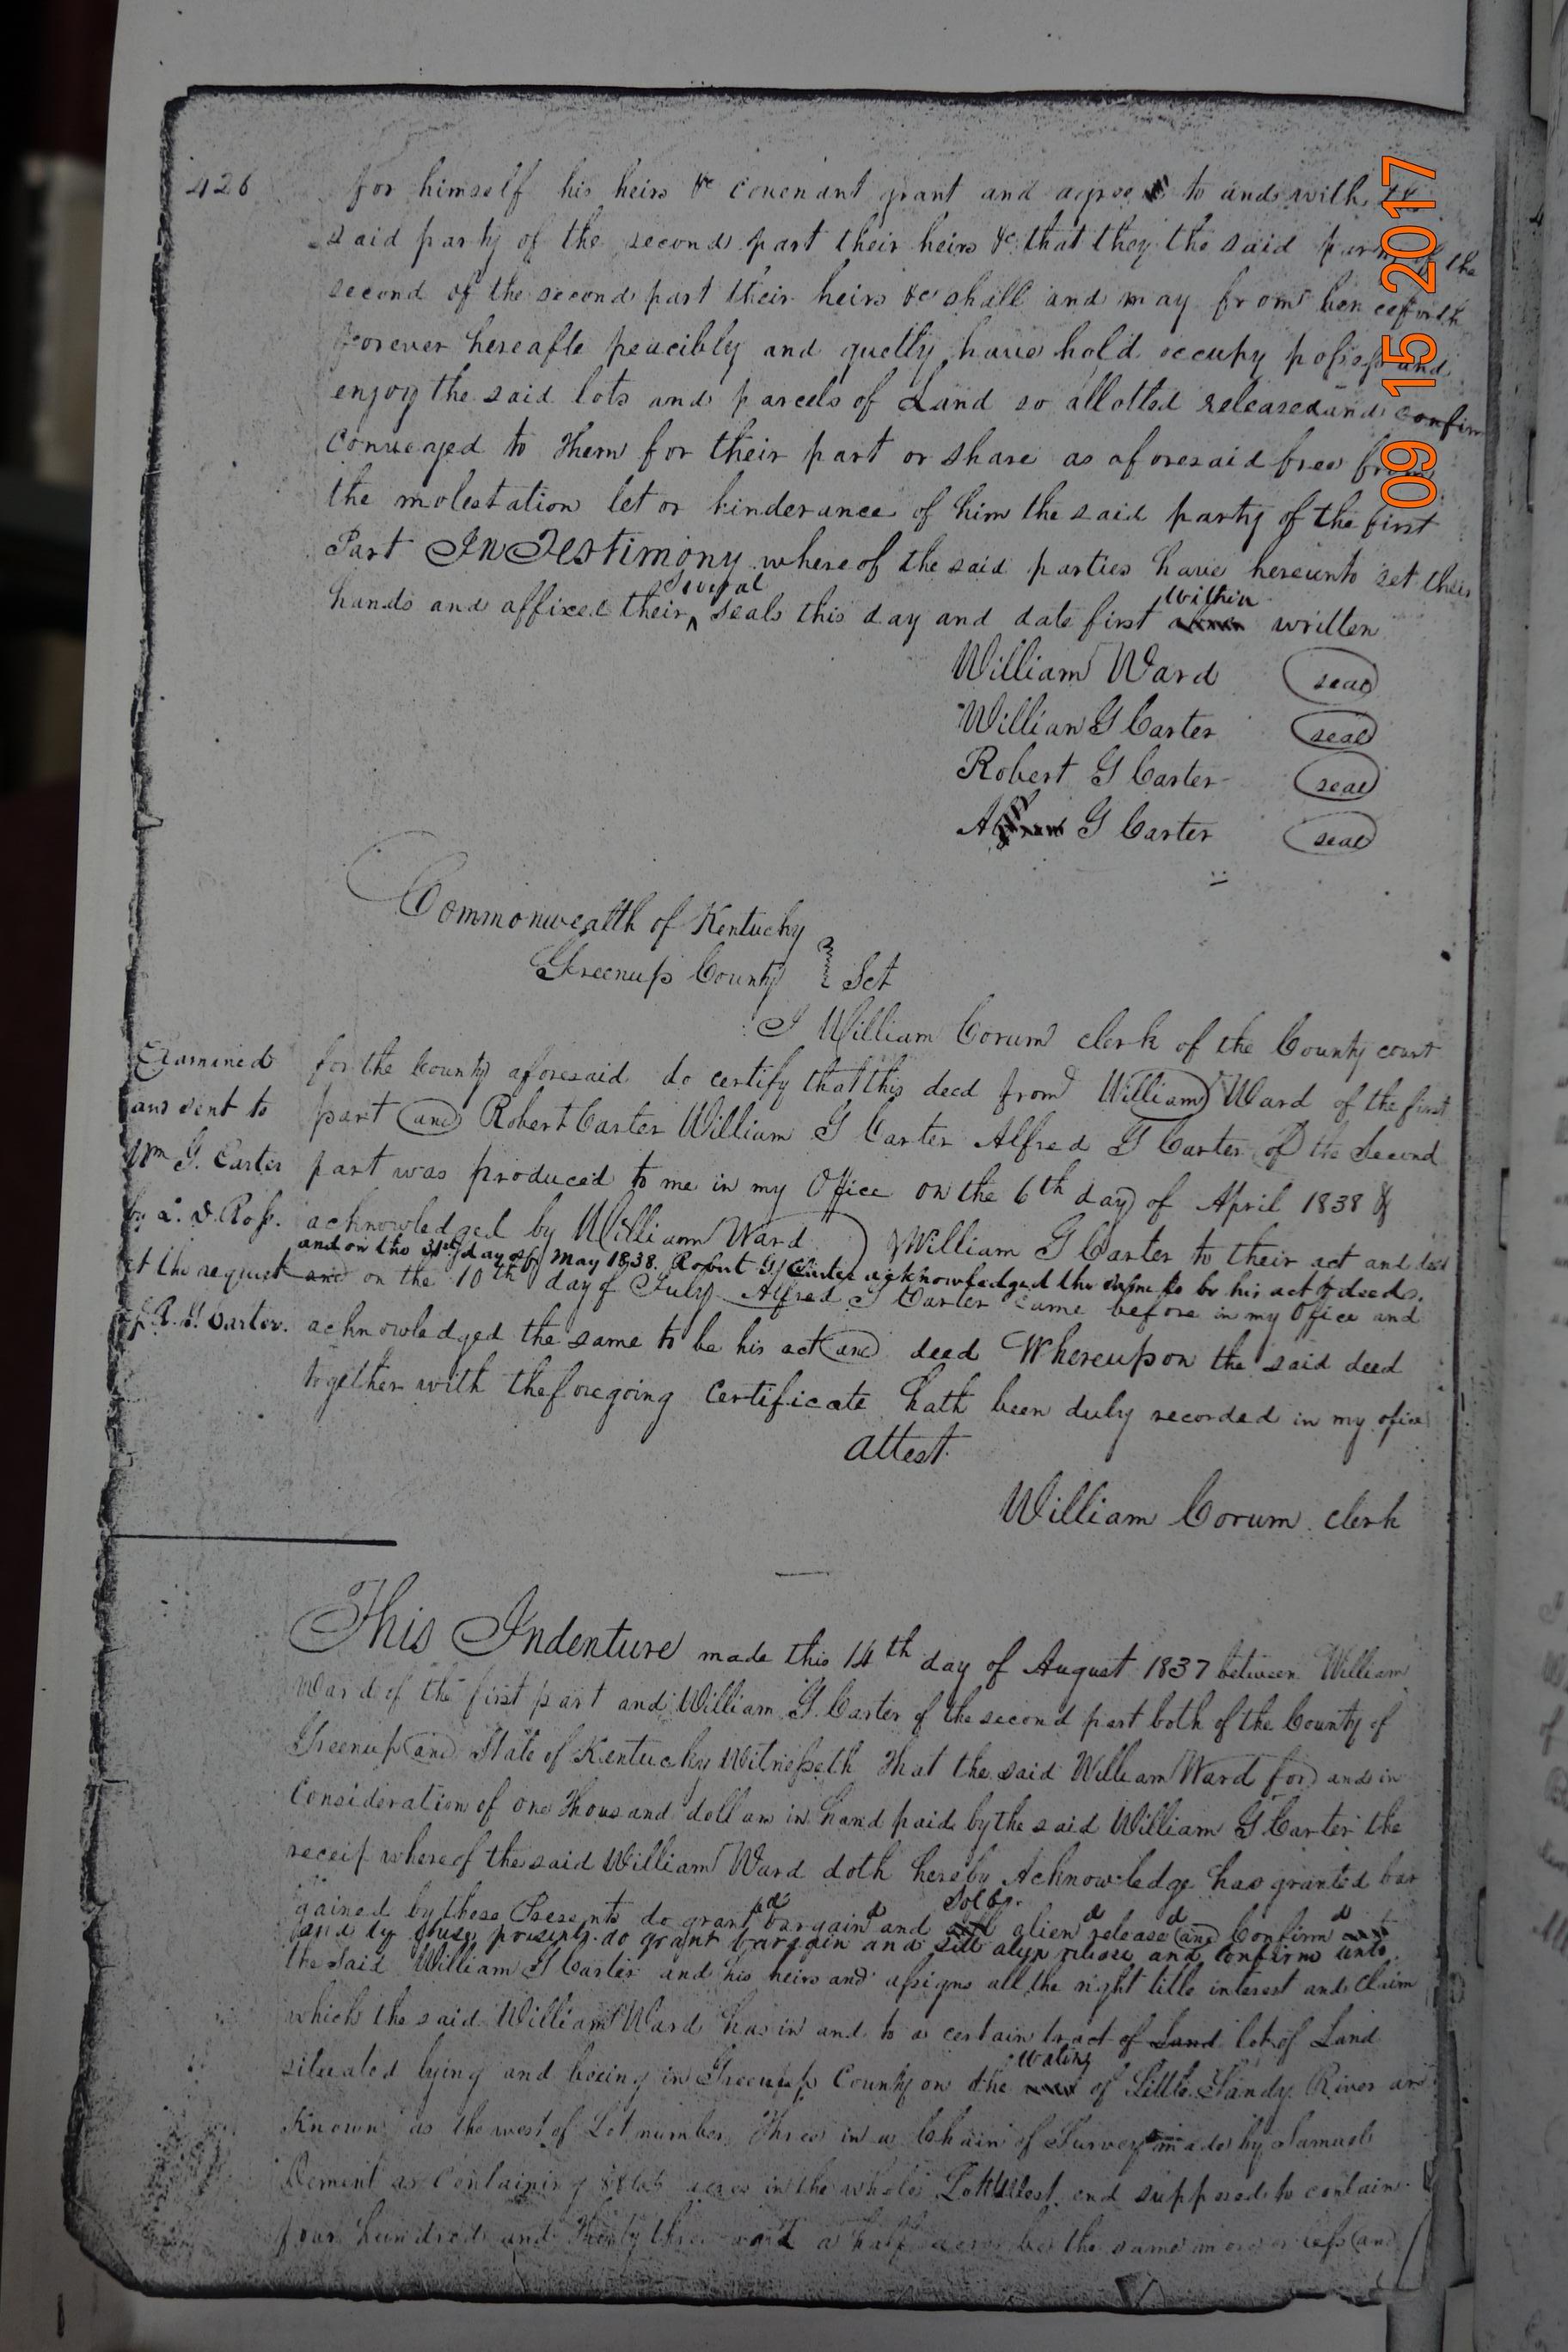 426
for himself his heirs &c covenant grant and agree to and with the
said party of the second part their heirs &c that they the said part of the
second of the second part their heirs &c shall and may from henceforth
forever hereafte peacibly and quetly have hold occupy possess and
enjoy the said lots and parcels of Land so allotted released and confirm
conveyed to them for their part or share as aforesaid free from
the molestation let or hinderance of him the said party of the first
Part In Testimony whereof the said parties have hereunto set their
several within
hands and affixed their ^ seals this day and date first written
William Ward seal
William G Carter seal
Robert G Carter seal
G Carter seal
Commonwealth of Kentucky
Greenup County } Sct
I William Corum clerk of the County court
for the County aforesaid do certify that this deed from William Ward of the first
part and Robert Carter William G Carter Alfred G Carter of the Second
part was produced to me in my Office on the 6th day of April 1838 &
acknowledged by William Ward & William G Carter to their act and deed
and on the 31st day of May 1838 Robert G Carter acknowledged the same to be his act & deeds.
and on the 10th day of July Alfred G Carter came before in my Office and
acknowledged the same to be his act and deed Whereupon the said deed
together with the foregoing certificate hath been duly recorded in my ofice
attest
William Corum clerk
Examined
and sent to
Wm G. Carter
by L. D. Ross.
at the request
of R. G. Carter.
This Indenture made this 14th day of August 1837 between William
Ward of the first part and William G. Carter of the second part both of the County of
Greenup and State of Kentucky Witnesseth that the said William Ward for and in
Consideration of one thousand dollars in hand paid by the said William G Carter the
receip whereof the said William Ward doth hereby Acknowledge has granted bar
ed d Sold d d d
gained by these Presents do grant bargain and sell alien release and Confirm
and by these presents do grant bargain and sell alyn release and confirm unto
the said William G Carter and his heirs and assigns all the right title interest and claim
which the said William Ward has in and to a certain tract of Land lot of Land
wating
situated lying and beeing in Greenup County on the of Little Sandy River and
Known as the west of Lot number Three in a Chain of Survey made by Samuel
Dement as Containing acres in the whole Lott West end supposed to contain
four hundred and three and a half acres be the same more or less and
09 15 2017